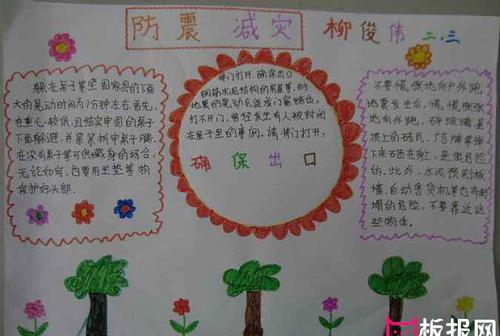 防震 减灾 柳俊伟 二.三
躲在桌子等坚固家具的下面
大的晃动时间约1分钟左右.首先,
在重心较低,且结实牢固的桌子
下面躲避,并紧紧抓牢桌子腿.
在没有桌子等可供藏身的场合,
无论如何,也要用坐垫等物
保护好头部.
将门打开,确保出口
钢筋水泥结构的房屋等,由于
地震的晃动会造成门窗错位,
打不开门,曾经发生有人被封闭
在屋子里的事例,请将门打开,
确保出口
不要慌张地向户外跑
地震发生后,慌慌张张
地向外跑,碎玻璃、屋
顶上的砖瓦、广告牌等掉
下来砸在身上,是很危险
的.此外,水泥预制板
墙、自动售货机等也有倒
塌的危险,不要靠近这
些物体.
板报网